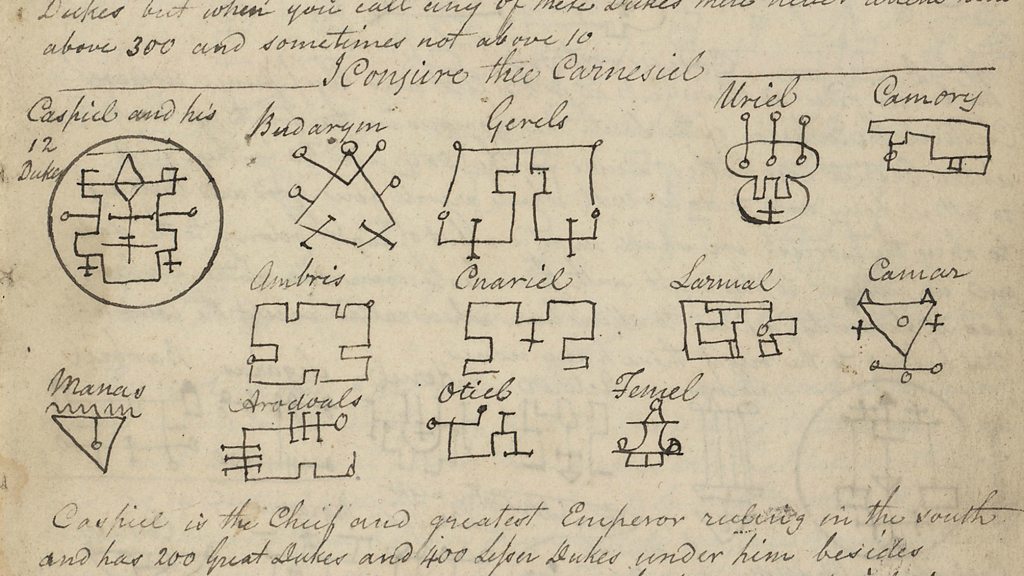 Dukes but when you call any of these Dukes there never
above 300 and sometimes not above 10
I Conjure thee Carnesiel
Caspiel and his
12
Dukes
Budarym
Gerels
Uriel
Camory
Ambris
Cnariel
Larmal
Camar
Manas
Arodoals
Otiel
Femel
Caspiel is the Chief and greatest Emperor ruling in the south
and has 200 Great Dukes and 400 Lesser Dukes under him besides